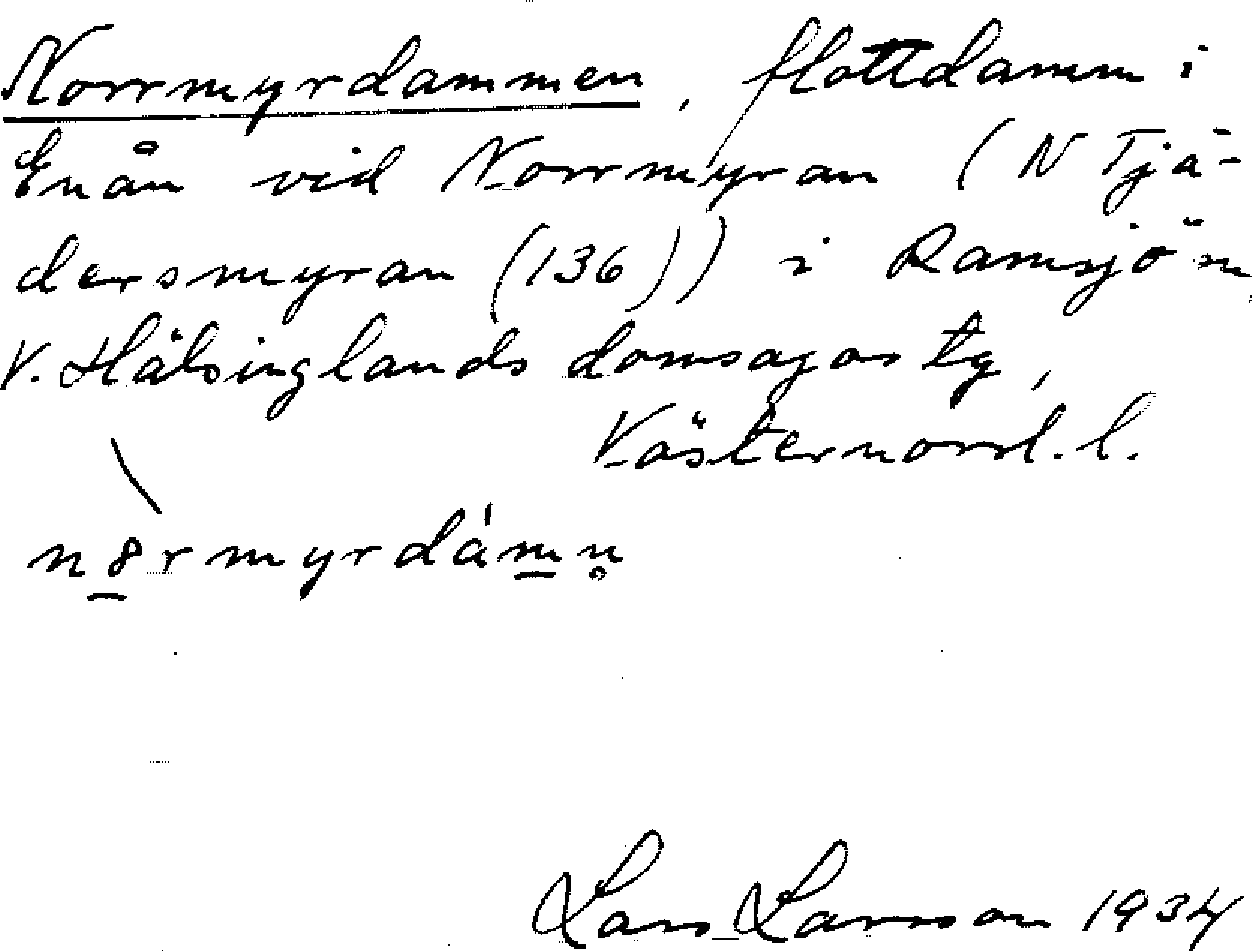 Norrmyrdammen, flottdamm i
Enån vid Norrmyran (N Tjä-
dersmyran (136)) i Ramsjö sn,
V. Hälsinglands domsagas tg,
Västernorrl. l.
n8rmyrdámn̥
Lars Larsson 1934